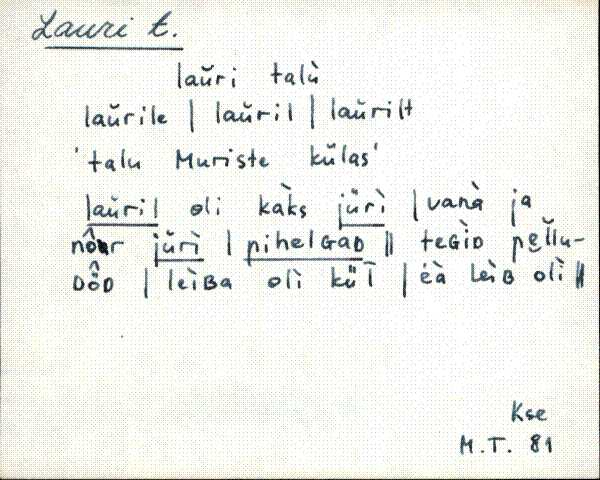 Lauri t.
laŭri talù
laŭrile | laŭril | laŭrilt
'talu Muriste külas'
laŭril oli kàks jŭrì | vanà ja
jŭrì | pihelGaD || teGìD
| leìBa olì | eà leìB olì ||
Kse
M.T. 81